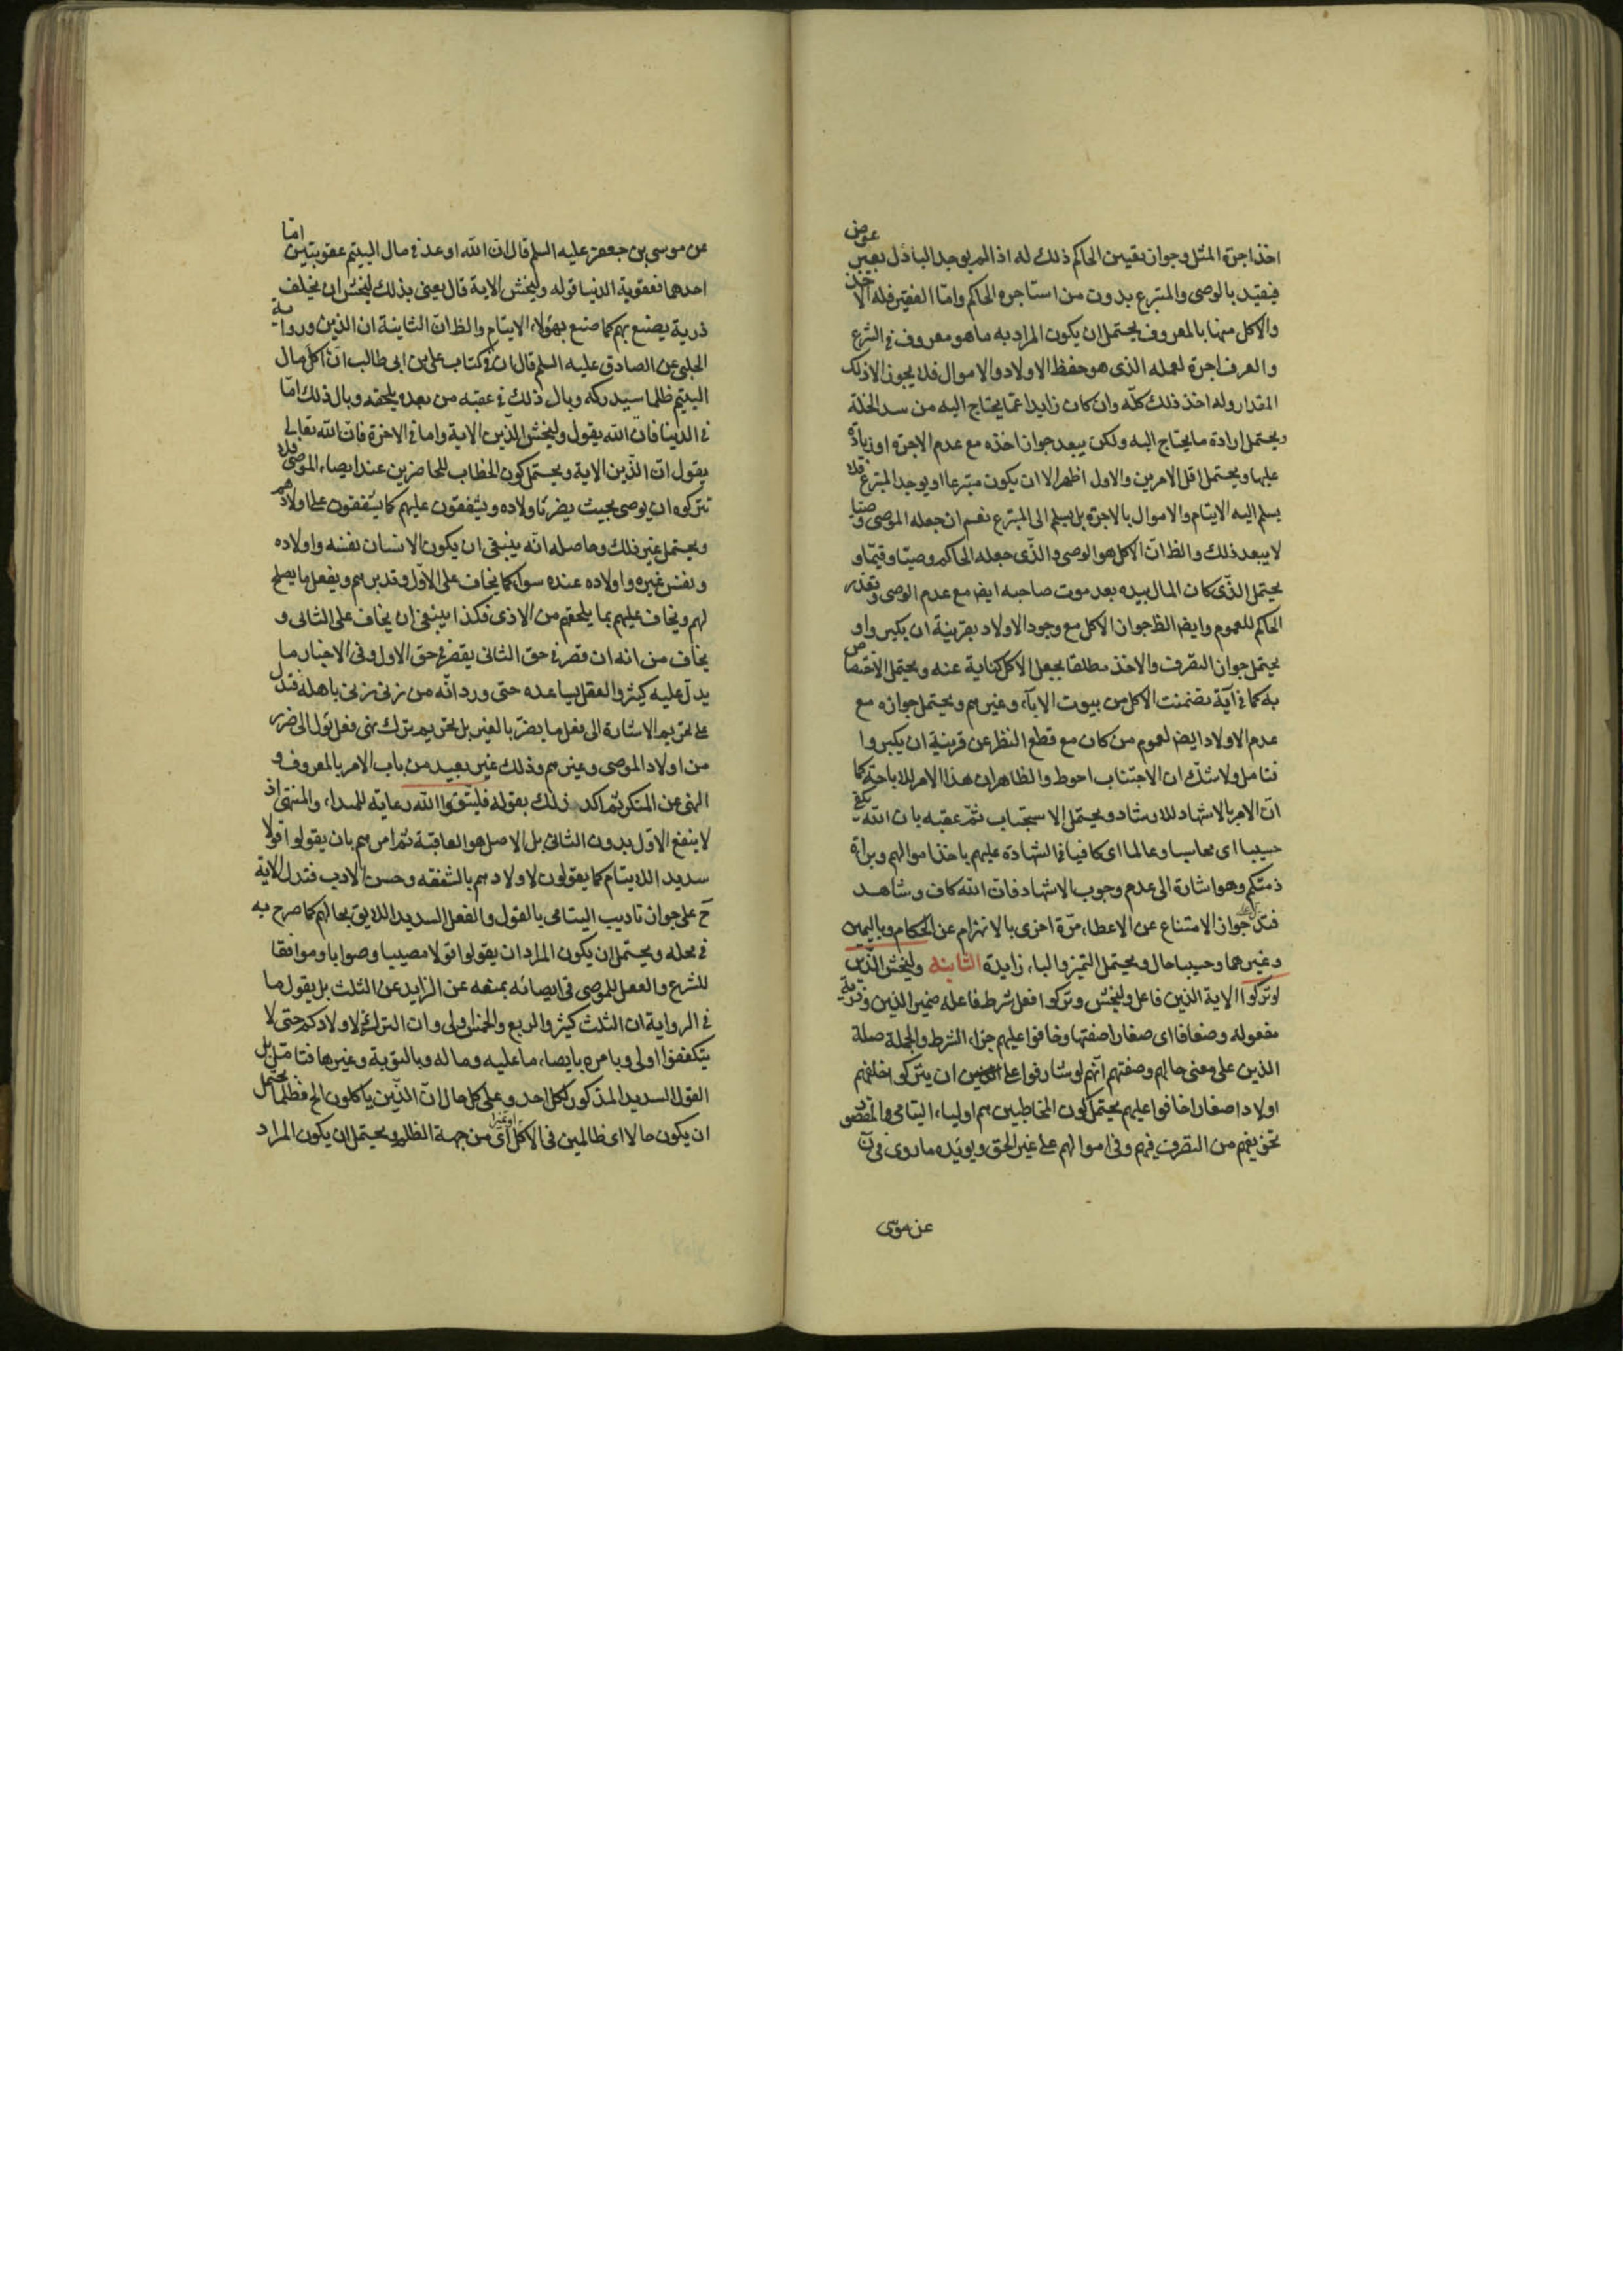 اخذ اجرة المثل وجواز تعيين الحاكم ذلك له اذا لم يوجد الباذل بغير عوض
فيقيد بالوصى والمتبرع بدون من استاجره الحاكم واما الفقير فله الاخذ
والاكل منها بالمعروف يحتمل ان يكون المراد به ما هو معروف فى الشرع
والعرف اجرة لعمله الذى هو حفظ الاولاد والاموال فلا يجوز الا ذلك
المقدار وله اخذ ذلك كله وان كان زايدا عما يحتاج اليه من سد الخلة
ويحتمل ارادة ما يحتاج اليه ولكن يبعد جواز اخذه مع عدم الاجرة او زيادة
عليها ويحتمل اقل الامرين والاول اظهر الا ان يكون متبرعا او يوجد المتبرع فلا
يسلم اليه الايتام والاموال بالاجرة بل يسلم الى المتبرع نعم ان جعله الموصى وصيا
لا يبعد ذلك والظ ان الاكل هو الوصى والذى جعله الحاكم وصيا وقيما و
يحتمل الذى كان المال بيده بعد موت صاحبه ايض مع عدم الوصى وتعذر
الحاكم للعموم وايضا الظ جواز الاكل مع وجود الاولاد بقرينة ان يكبروا و
يحتمل جواز التصرف والاخذ مطلقا بجعل الاكل كناية عنه ويحتمل الاختصاص
به كما فى آية تضمنت الاكل من بيوت الاباء وغيرهم ويحتمل جوازه مع
عدم الاولاد ايض لعموم من كان مع قطع النظر عن قرينة ان يكبروا
فتامل ولا شك ان الاجتناب احوط والظاهر ان هذا الامر للاباحة كما
ان الامر بالاشهاد للارشاد ويحتمل الاستحباب ثم عقبه بان الله يكفى
حسيبا اى محاسبا وعالما اى كافيا فى الشهادة عليهم باخذ اموالهم وبراة
ذمتكم وهو اشارة الى عدم وجوب الاشهاد فان الله كاف وشاهد
فتدل على جواز الامتناع عن الاعطاء مرة اخرى بالانهزام عن الحكام وباليمين
وغيرهما وحسيبا حال ويحتمل التميز والباء زايدة الثانية وليخش الذين
لو تركوا الاية الذين فاعل وليخش وتركوا فعل شرط فاعله ضمير الذين وذرية
مفعوله وضعافا اى صغارا صفتها وخافوا عليهم جزاء الشرط والجملة صلة
الذين على معنى حالهم وصفتهم انهم لو شارفوا على ان يتركوا خلفهم
اولادا صغارا خافوا عليهم يحتمل كون المخاطبين هم اولياء اليتامى والمقصود
تخويفهم من التصرف فيهم وفى اموالهم على غير الحق ويويده ما روى فى ن
عن موسى
عن موسى بن جعفر عليه السلم قال ان الله اوعد فى مال اليتيم عقوبتين اما
احدهما فعقوبة الدنيا قوله وليخش الاية قال يعنى بذلك ليخش ان يخلف
ذرية يصنع بهم كما صنع بهؤلاء الايتام والظ ان الثانية ان الذين ورواية
الحلبى عن الصادق عليه السلم قال ان فى كتاب على بن ابى طالب ان اكل مال
اليتيم ظلما سيدركه وبال ذلك فى عقبه من بعده يلحقه وبال ذلك اما
فى الدنيا فان الله يقول وليخش الذين الاية واما فى الاخرة فان الله تعالى
يقول ان الذين الاية ويحتمل كون الخطاب للحاضرين عند ايصاء الموصى فلا
تتركوه ان يوصى بحيث يضر باولاده ويشفقون عليهم كما يشفقون على اولادهم
ويحتمل غير ذلك وحاصله انه ينبغى ان يكون الانسان نفسه واولاده
ونفس غيره واولاده عنده سواء كما يخاف على الاول وقد برهم ويفعل ما يصلح
لهم ويخاف عليهم بما يلحقهم من الاذى فكذا ينبغى ان يخاف على الثانى و
يخاف من انه ان قصر فى حق الثانى يقصر فى حق الاول وفى الاخبار ما
يدل عليه كثير والعقل يساعده حتى ورد انه من زنى زنى باهله فتدل
على تحريم الاشارة الى فعل ما يضر بالغير بل تحريم ترك نهى فعل يؤل الى ضرر
من اولاد الموصى وغيرهم وذلك غير بعيد من باب الامر بالمعروف و
النهى عن المنكر ثم اكد ذلك بقوله فليتقوا الله رعاية للمبداء والمنتهى اذ
لا ينفع الاول بدون الثانى بل الاصل هو العاقبة ثم امرهم بان يقولوا قولا
سديدا للايتام كما يقولون لاولادهم بالشفقه وحسن الادب فتدل الاية
ح على جواز تاديب اليتامى بالقول والفعل السديد اللايق بحالهم كما صرح به
فى محله ويحتمل ان يكون المراد ان يقولوا قولا مصيبا وصوابا وموافقا
للشرع والعقل للموصى فى ايصائه بمنعه عن الزايد عن الثلث بل يقول ما
فى الرواية ان الثلث كثير والربع والخمس اولى وان الترك لاولادكم حتى لا
يتكففوا اولى ويامره بايصاء ما عليه وماله وبالتوبة وغيرها فتامل بل
القول السديد المذكور لكل احد وعلى كل حال ان الذين ياكلون الخ فظلما يحتمل
ان يكون حالا اى ظالمين فى الاكل او تميزا اى من جهة الظلم ويحتمل ان يكون المراد